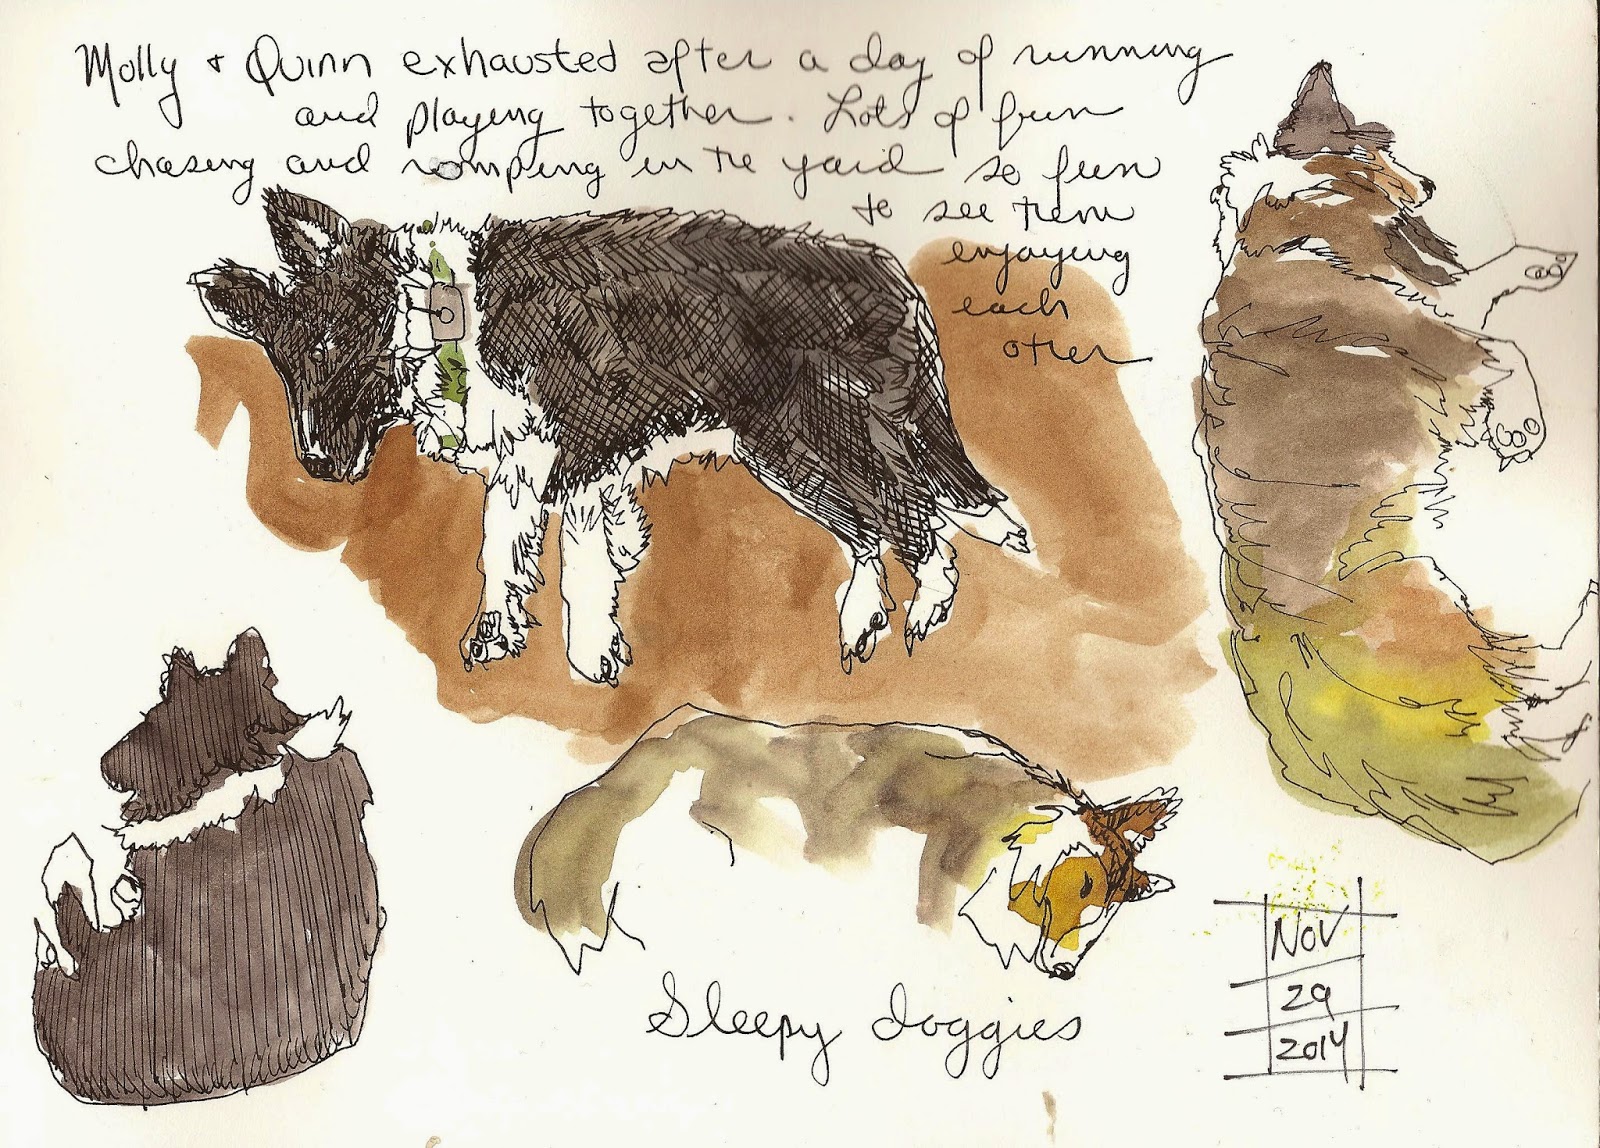 Molly + Quinn exhausted after a day of running
and playing together. Lots of fun
chasing and romping in the yard so fun
to see them
enjoying
each
other
Sleepy doggies
Nov
29
2014